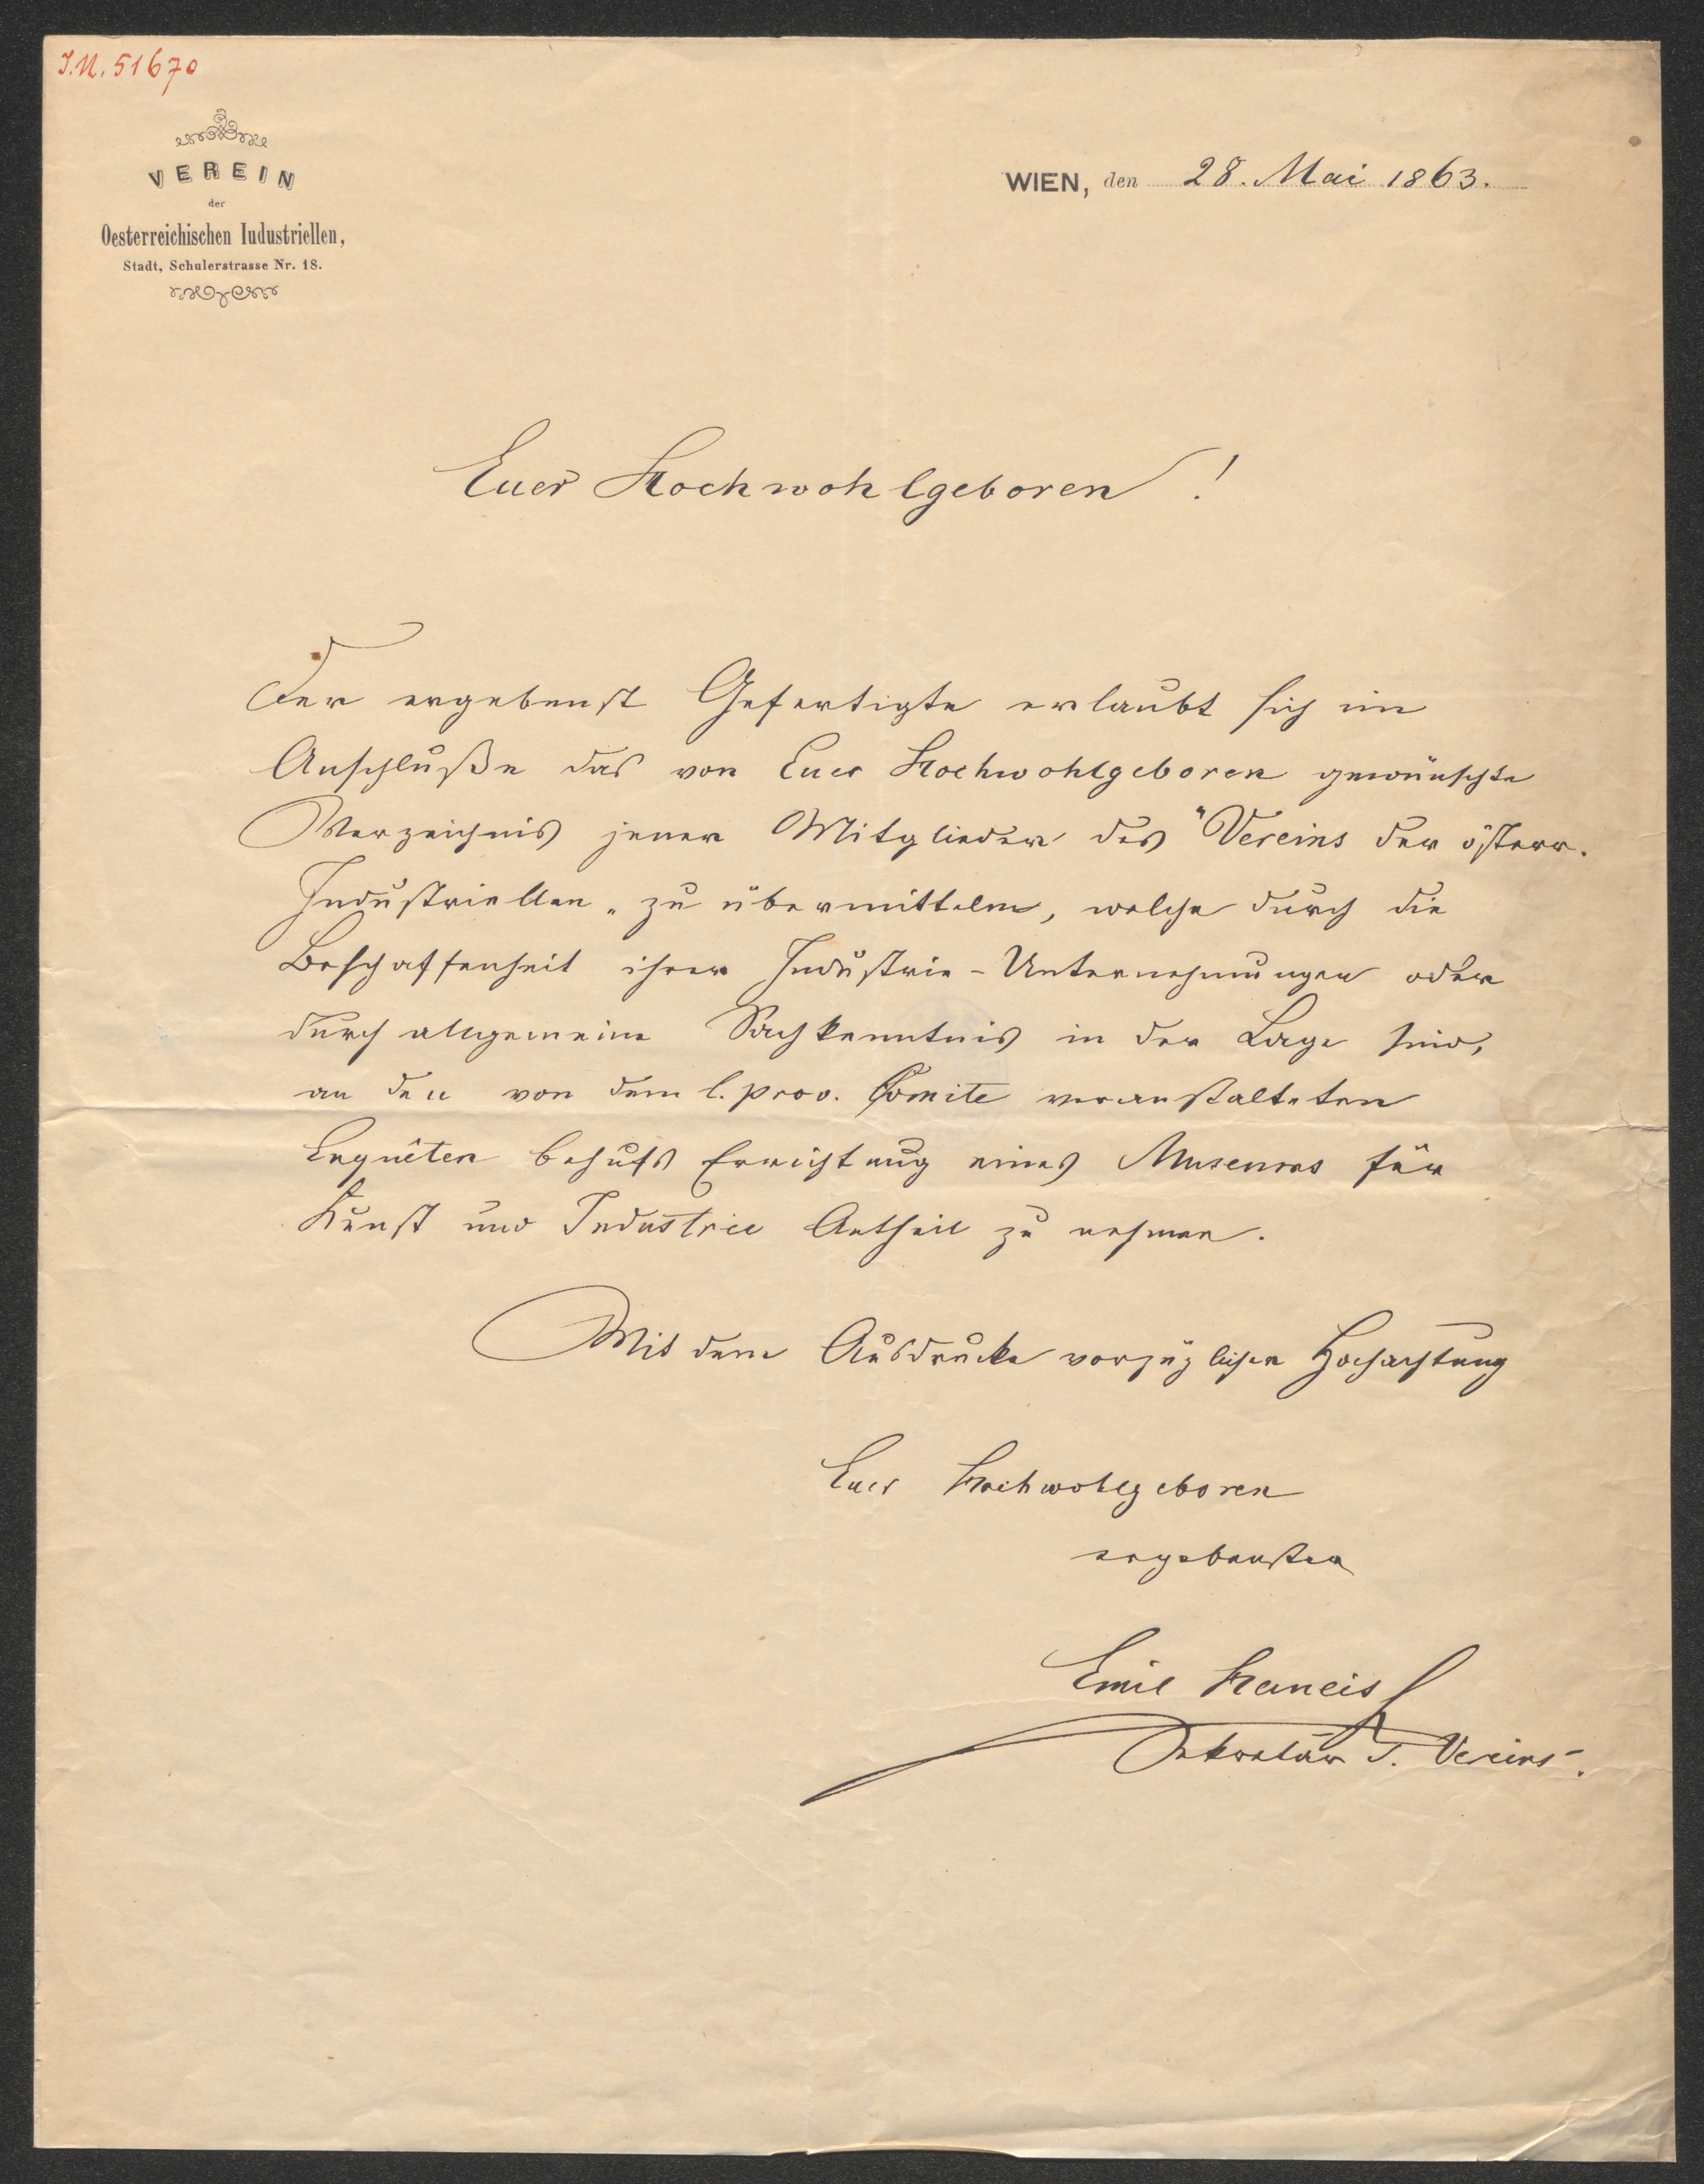 I.N. 51670
VEREIN
der
Oesterreichischen Iudustriellen,
Stadt, Schulerstrasse Nr. 18.
WIEN, den 28. Mai 1863.
Euer Hochwohlgeboren!
Der ergebenst Gefertigte erlaubt sich im
Anschluße das von Euer Hochwohlgeboren gewünschte
Verzeichnis jener Mitglieder des "Vereins der österr.
Industriellen" zu übermitteln, welche durch die
Beschaffenheit ihrer Industrie-Unternehmungen oder
durch allgemeine Sachkenntnis in der Lage sind,
an den von dem l. prov. Comite veranstalteten
Enquêten behufs Errichtung eines Museums für
Kunst und Industrie Antheil zu nehmen.
Mit dem Ausdrucke vorzüglicher Hochachtung
Euer Hochwohlgeboren
ergebenster
Emil
Sekretär d. Vereins.